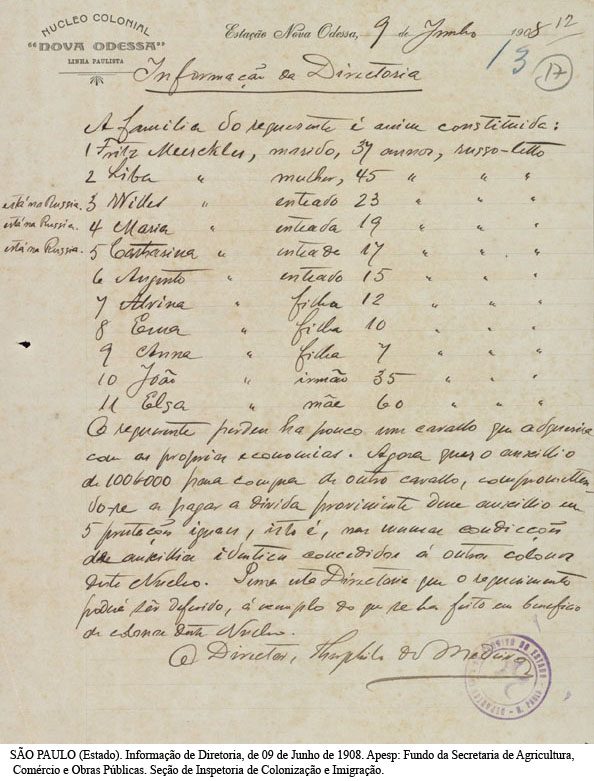 NUCLEO COLONIAL
"NOVA ODESSA"
LINHA PAULISTA
Estação Nova Odessa, 9 de Junho 1908
12
13
17
Informação da Directoria
A familia do requerente é assim constituida:
1 Fritz Meerckler, marido, 37 annos, russo-letto
2 Liba " mulher, 45 " " "
está na Russia. 3 Willes " enteado 23 " " "
está na Russia. 4 Maria " enteada 19 " " "
está na Russia. 5 Catharina " enteada 17 " " "
6 Augusto " enteado 15 " " "
7 Alvina " filha 12 " " "
8 Erna " filha 10 " "
9 Anna " filha 7 " " "
10 João " irmão 35 " " "
11 Elza " mãe 60 " " "
O requerente perdeu ha pouco um cavallo que adquerira
com as proprias economias. Agora quer o auxilio
de 100$000 para compra de outro cavallo, comprometten-
do-se a pagar a divida proviniente desse auxilio em
5 prestações iguaes, isto é, nas mesmas condicções
de auxilios identicos concedidos á outros colonos
deste Nucleo. Pensa esta Directoria que o requerimento
poderá ser deferido, á exemplo do que se ha feito em beneficio
de colonos deste Nucleo.
O Director,
SÃO PAULO (Estado). Informação de Diretoria, de 09 de Junho de 1908. Apesp: Fundo da Secretaria de Agricultura,
Comércio e Obras Públicas. Seção de Inspetoria de Colonização e Imigração.